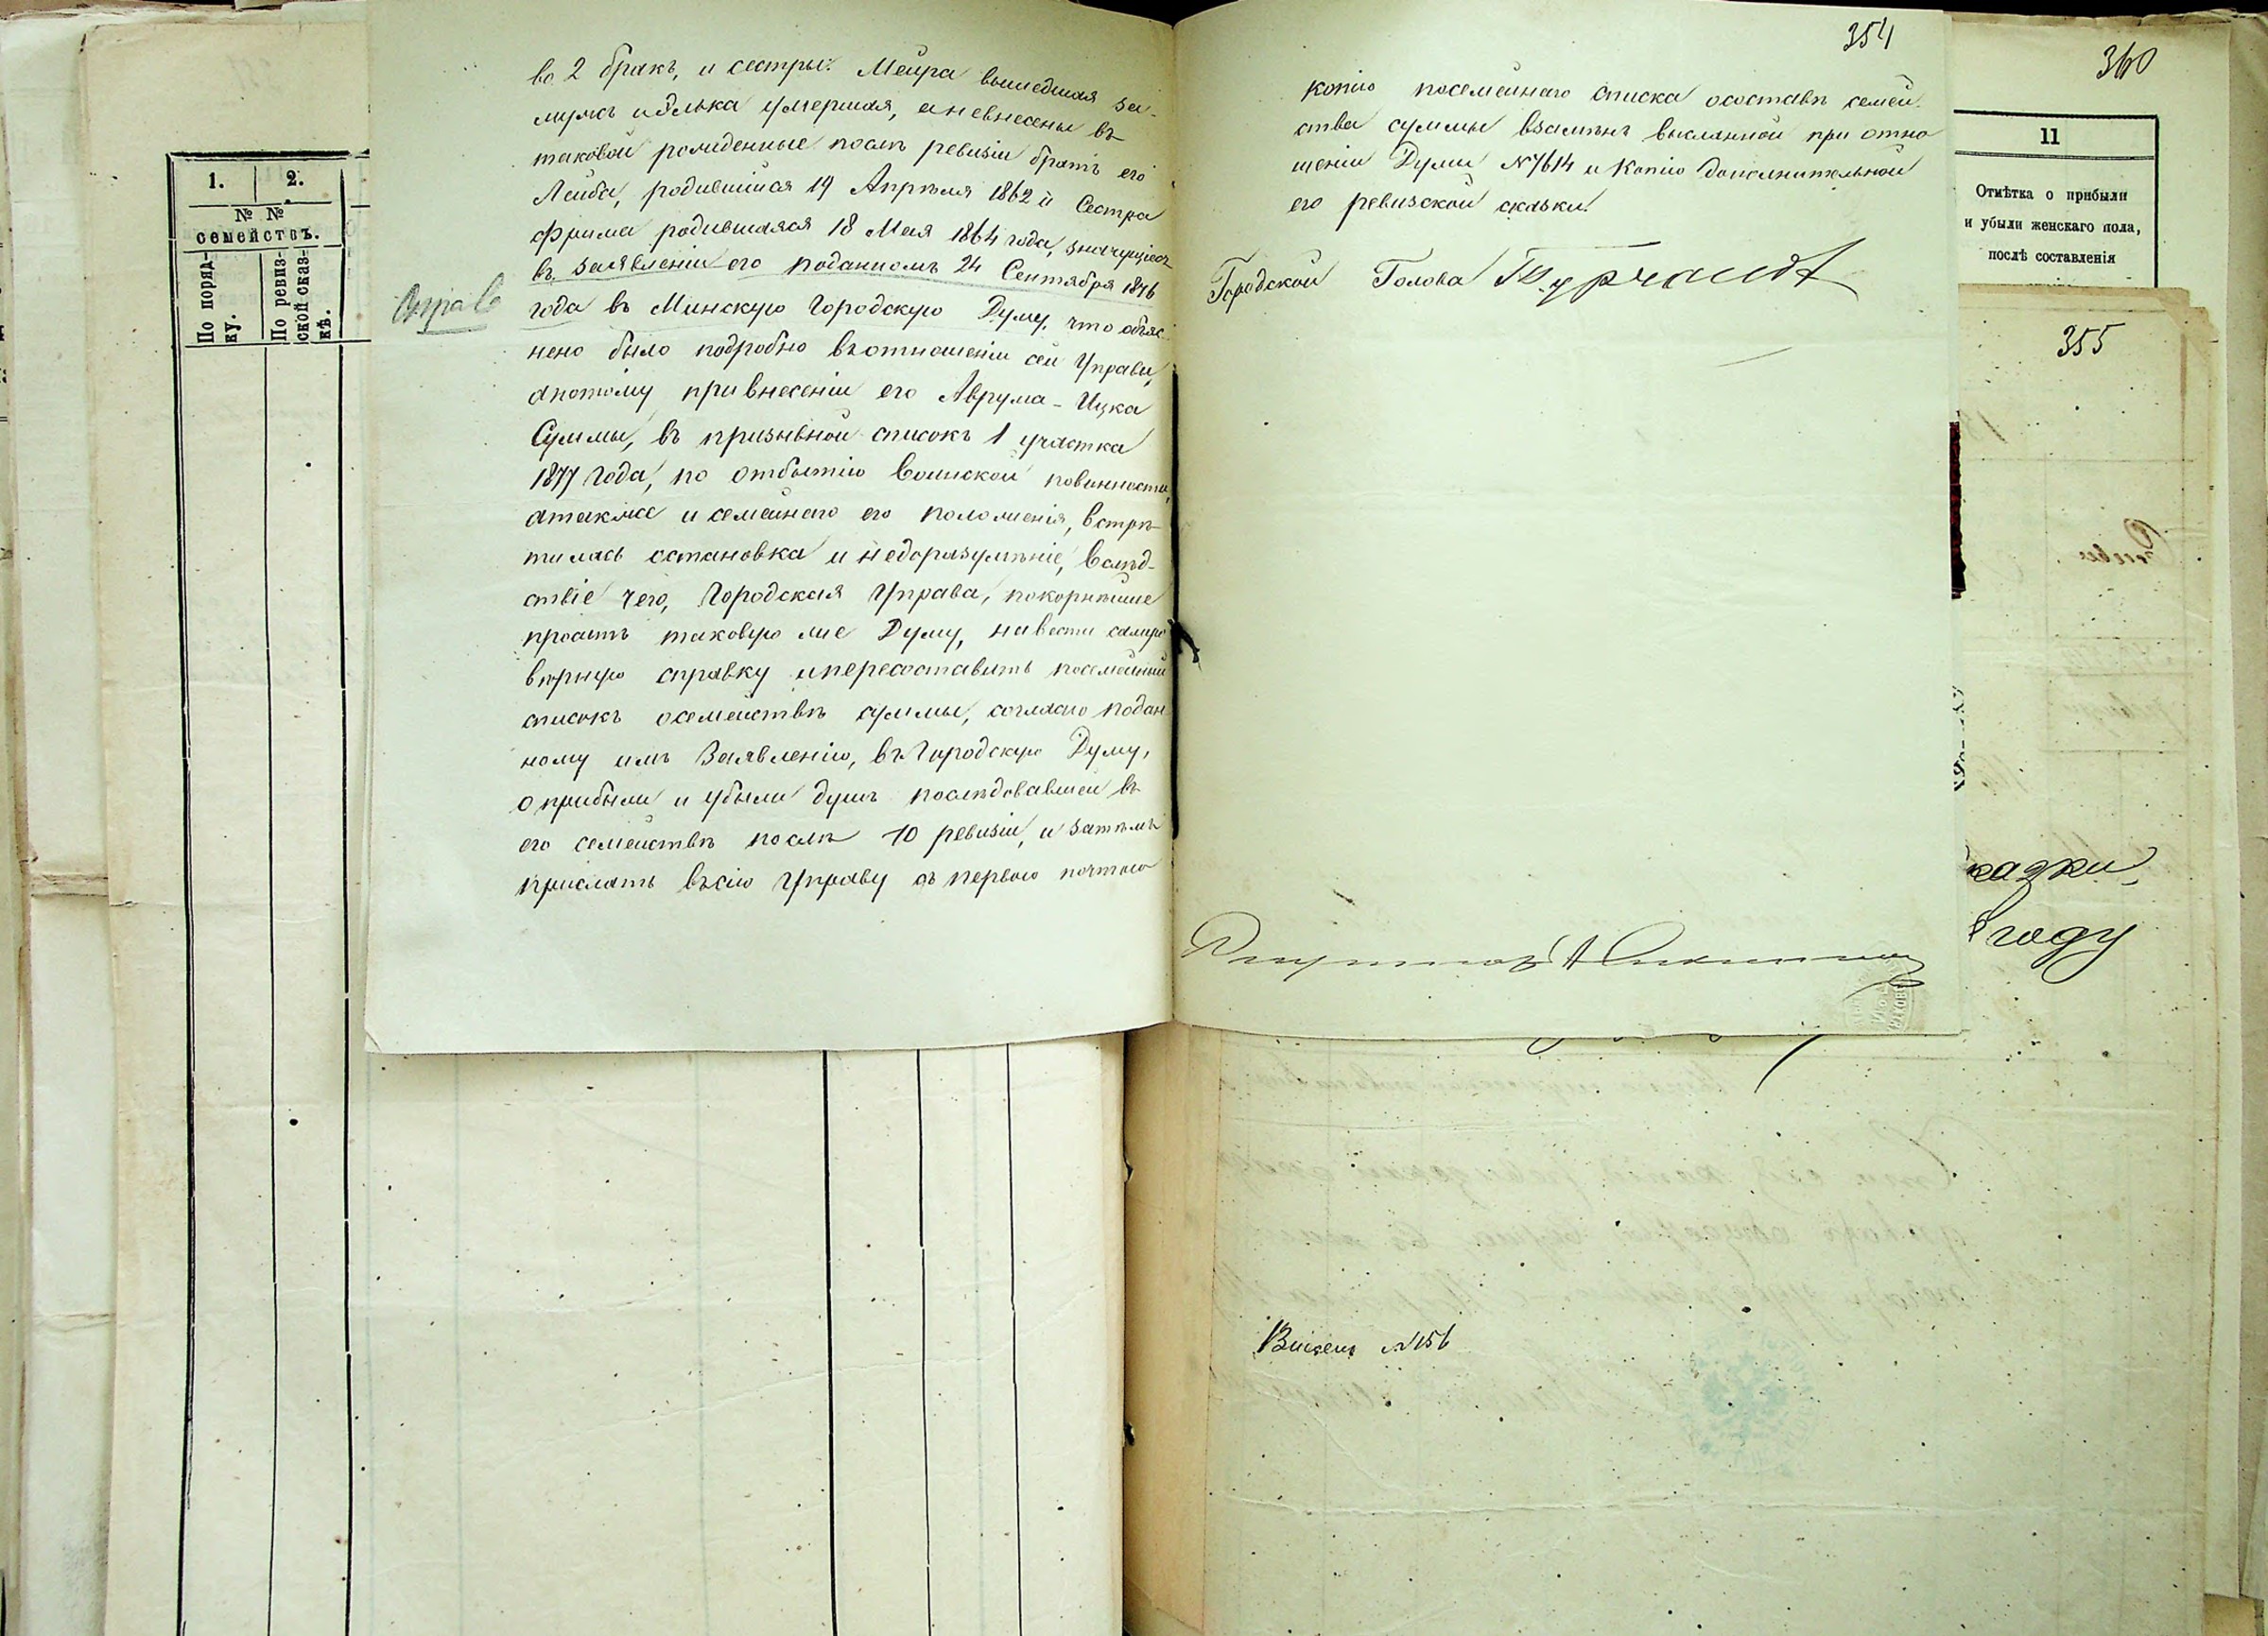 во 2 бракъ, и сестры: Меира вышедшая за-
мужъ и Элька умершая, а невнесены въ
таковой рожденные послѣ ревизіи братъ его
Лейба, родившійся 19 Апрѣля 1862 и Сестра
Фрима родившаяся 18 Мая 1864 года, значущіеся
въ заявленіи его поданномъ 24 Сентября 1876
года въ Минскую Городскую Думу, что объяс-
нено было подробно въ отношеніи сей Управы,
а потому при внесеніи его Аврума-Ицка
Суммы, въ призывной списокъ 1 участка
1877 года, по отбытію Воинской повинности,
а также и семейнаго его положенія, встрѣ-
тилась остановка и недоразумѣніе, вслѣд-
ствіе чего, Городская Управа, покорнѣйше
проситъ таковую же Думу, навести самую
вѣрную справку и пересоставить посемейный
списокъ о семействѣ Суммы, согласно подан-
ному имъ Заявленію, въ Городскую Думу,
о прибыли и убыли душъ послѣдовавшей въ
его семействѣ послѣ 10 ревизіи, и затѣмъ
прислать въ сію Управу съ первою почтою
354
копію посемейнаго списка о составѣ семей-
ства Суммы взамѣнъ высланной при отно-
шеніи Думы №7614 и Копію дополнительной
его ревизской сказки.
Городской Голова
360
11
Отмѣтка о прибыли
и убыли женскаго пола,
послѣ составленія
355
казки
году
1.
2.
№ №
семействъ.
По поряд-
ку.
По ревиз-
ской сказ-
кѣ.
№156